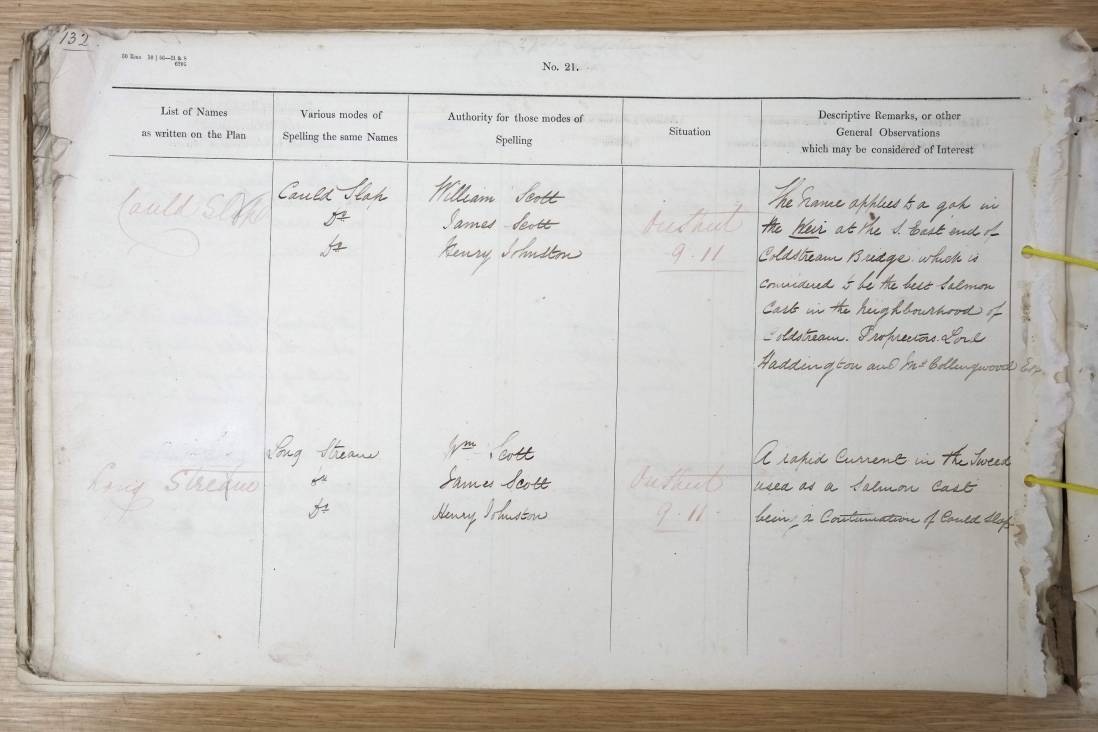 132
No. 21.
List of Names
as written on the Plan
Various modes of
Spelling the same Names
Authority for those modes of
Spelling
Situation
Descriptive Remarks, or other
General Observations
which may be considered of Interest
Cauld Slap
Cauld Slap
Do
Do
William Scott
James Scott
Henry Johnston
9.11
The Name applies to a gap in
the Weir at the S. East end of
Coldstream Bridge. which is
considered to be the best Salmon
Cast in the Neighbourhood of
Coldstream. Proprietors. Lord
Haddington and Mr Collingwood Esq
Long Stream
Long Stream
Do
Do
Wm Scott
James Scott
Henry Johnston
9.11
A rapid Current in the Tweed
used as a Salmon Cast
being a Continuation of Cauld Slap